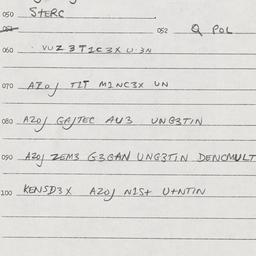 050 STERC
052 Q POL
060 VUZ 3T1C3X U.3N
070 AZOJ TZT M1NC3X UN
080 AZOJ GAJTEC AU3 UNG3TIN
090 AZOJ ZEM3 G3GAN UNG3TIN DENCMULT
100 KENSD3X AZOJ N1S+ U+NTIN